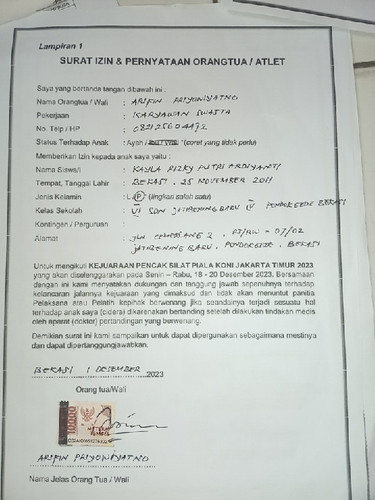 Lampiran 1
SURAT IZIN & PERNYATAAN ORANGTUA / ATLET
Saya yang bertanda tangan dibawah ini :
Nama Orangtua / Wali : ARIFIN PRIYONIYATNO
Pekerjaan : KARYAWAN SWASTA
No. Telp / HP :
Status Terhadap Anak : Ayah / *(coret yang tidak perlu)
Memberikan Izin kepada anak saya yaitu :
Nama Siswa/i : KAYLA RIZKY PUTRI ARDIYANTI
Tempat, Tanggal Lahir : BEKASI, 25 NOVEMBER 2011
Jenis Kelamin : L / P (lingkari salah satu)
Kelas Sekolah : VI SDN JATIBENING BARU VI PONDOKGEDE BEKASI
Kontingen / Perguruan :
Alamat : JLN 2, RT/RW - 07/02
JATIBENING BARU, PONDOKGEDE, BEKASI
Untuk mengikuti KEJUARAAN PENCAK SILAT PIALA KONI JAKARTA TIMUR 2023
yang akan diselenggarakan pada Senin – Rabu, 18 - 20 Desember 2023. Bersamaan
dengan ini kami menyatakan dukungan dan tanggung jawab sepenuhnya terhadap
kelancaran jalannya kejuaraan yang dimaksud dan tidak akan menuntut panitia
Pelaksana atau Pelatih kepihak berwenang jika seandainya terjadi sesuatu hal
terhadap anak saya (cidera) dikarenakan bertanding setelah dilakukan tindakan medis
oleh aparat (dokter) pertandingan yang berwenang.
Demikian surat ini kami sampaikan untuk dapat dipergunakan sebagaimana mestinya
dan dapat dipertanggungjawabkan.
BEKASI 1 DESEMBER 2023
Orang tua/Wali
10000
METERAI
TEMPEL
ARIFIN PRIYONIYATNO
Nama Jelas Orang Tua / Wali